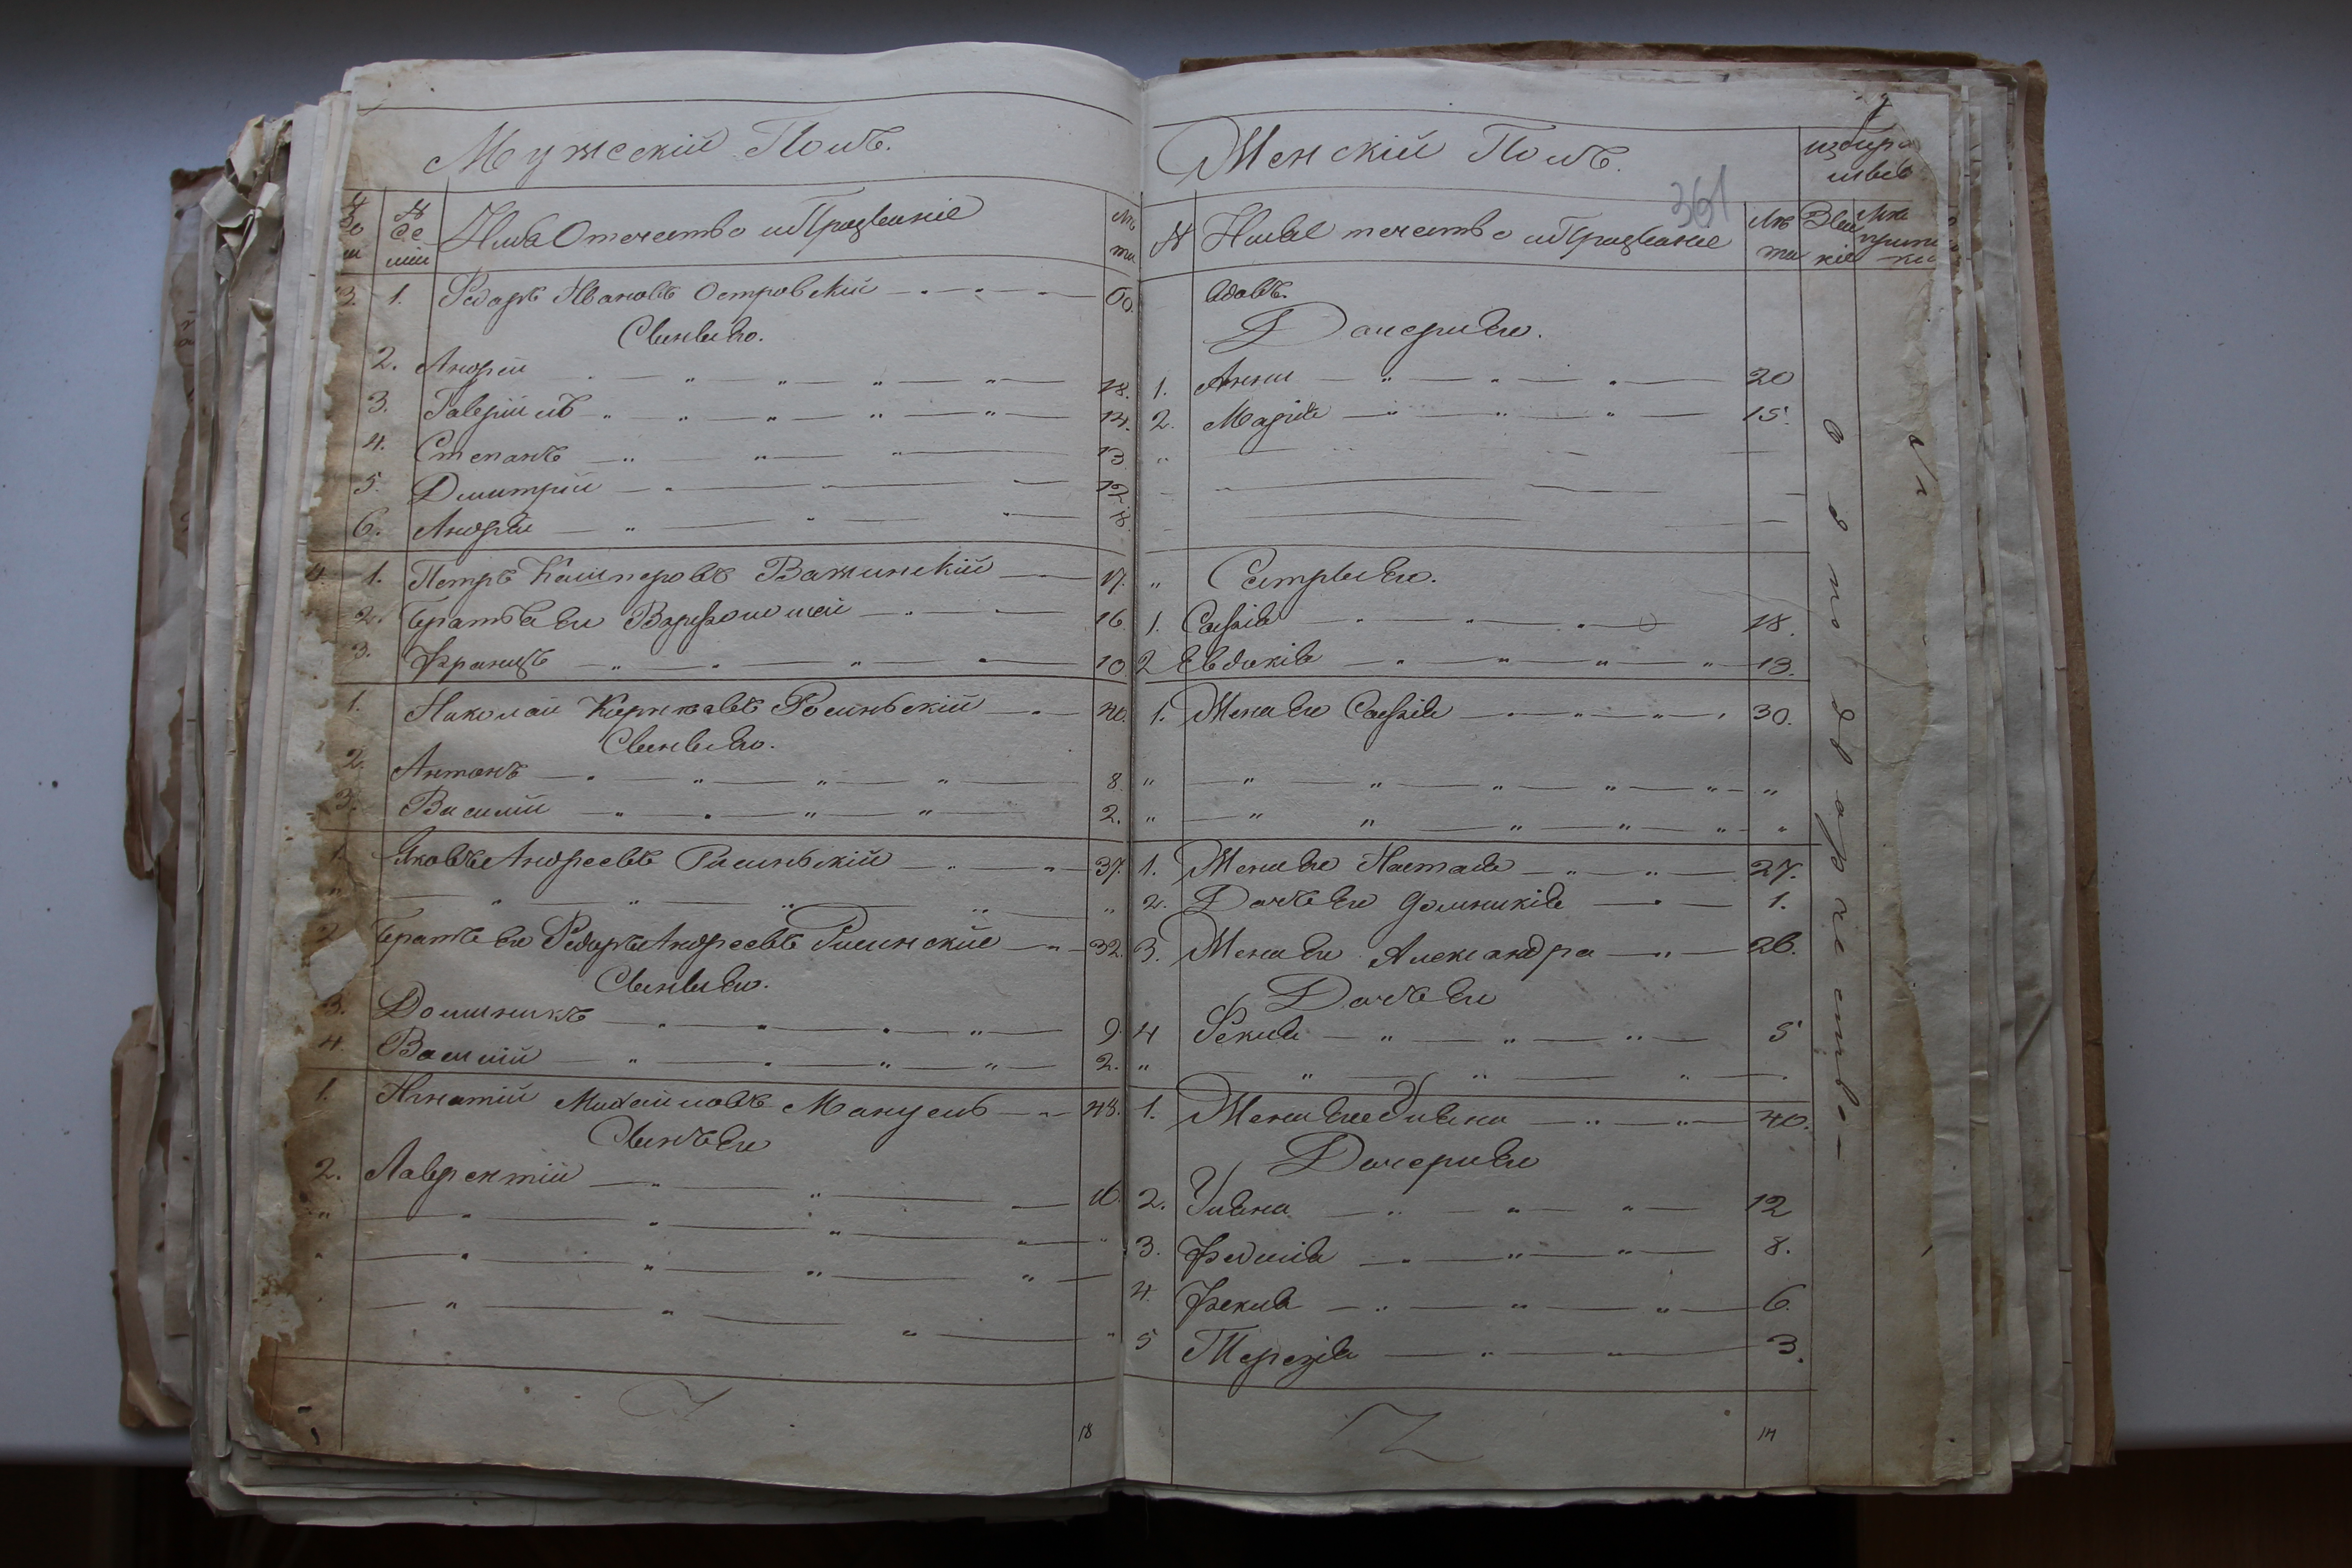 Мужескій Полъ.
№ де ... Имя Отечество и Прозваніе Лѣ та
3. 1. Ѳедоръ Ивановъ Островскій 60.
Сыновья Его.
2. Андрей 18.
3. Гавріилъ 14.
4. Степанъ 13
5. Дмитрій 12
6. Андрей
4. 1. Петръ Кашперовъ Важинскій 17.
2. Братья Его Варфоломей 16
3. Францъ 10
1. Николай Росинскій 40.
Сыновья Его.
2. Антонъ 8.
3. Василій 2.
1. Яковъ Андреевъ Росинскій 37.
2 Братъ Его Ѳедоръ Андреевъ Росинскій 32.
Сыновья Его.
3. Доминикъ 9
4. Василій 2.
1. Игнатій Михайловъ Манцевъ 48.
Сынъ Его
2. Лаврентій 16.
18
Женскій Полъ.
361
№ Имя Отечество и Прозваніе Лѣ та Зва ніе
вдовъ.
Дочери Его.
1. Анна 20
2. Марія 15.
Сестры Его.
1. Софія 18.
2 Евдокія 13.
1. Жена Его Софія 30.
1. Жена Его Настася 27.
2. Дочь Его Доминикія 1.
3. Жена Его Александра 26.
Дочь Его
4 Ѳекла 5
1. Жена Его Уліяна 40.
Дочери Его
2. Уліяна 12
3. 8.
4. Фекла 6.
5 Терезія 3.
14
однодворчество